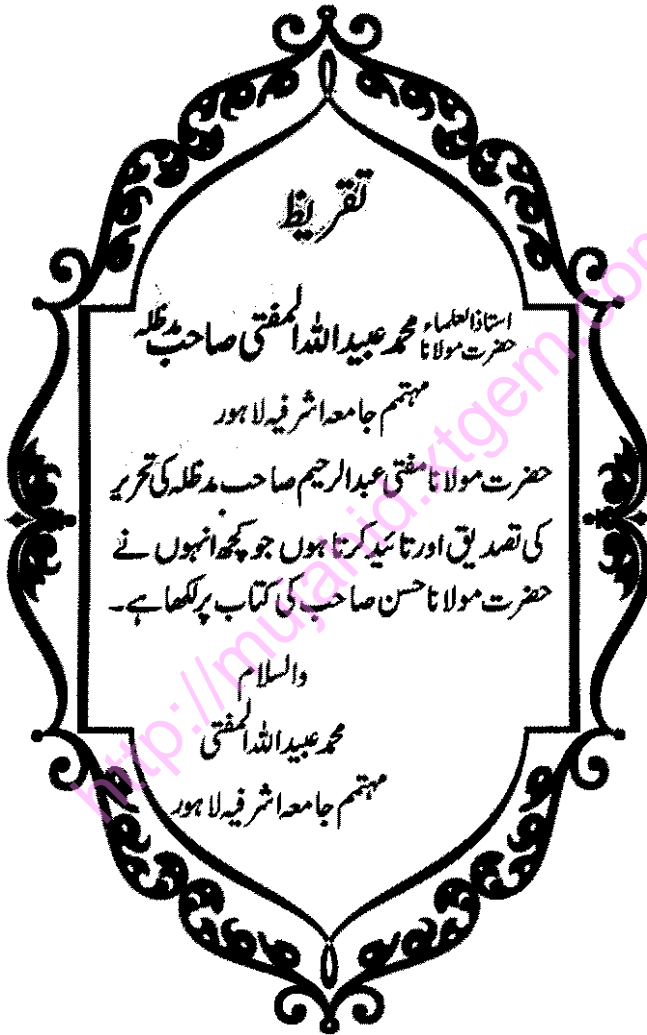 تقریظ
استاذ العلماء
حضرت مولانا محمد عبید اللہ المفتی صاحب مدظلہ
مہتمم جامعہ اشرفیہ لاہور
حضرت مولانا مفتی عبد الرحیم صاحب مدظلہ کی تحریر
کی تصدیق اور تائید کرتا ہوں جو کچھ انہوں نے
حضرت مولانا حسن صاحب کی کتاب پر لکھا ہے۔
والسلام
محمد عبید اللہ المفتی
مہتمم جامعہ اشرفیہ لاہور
http://mujahid.xtgem.com